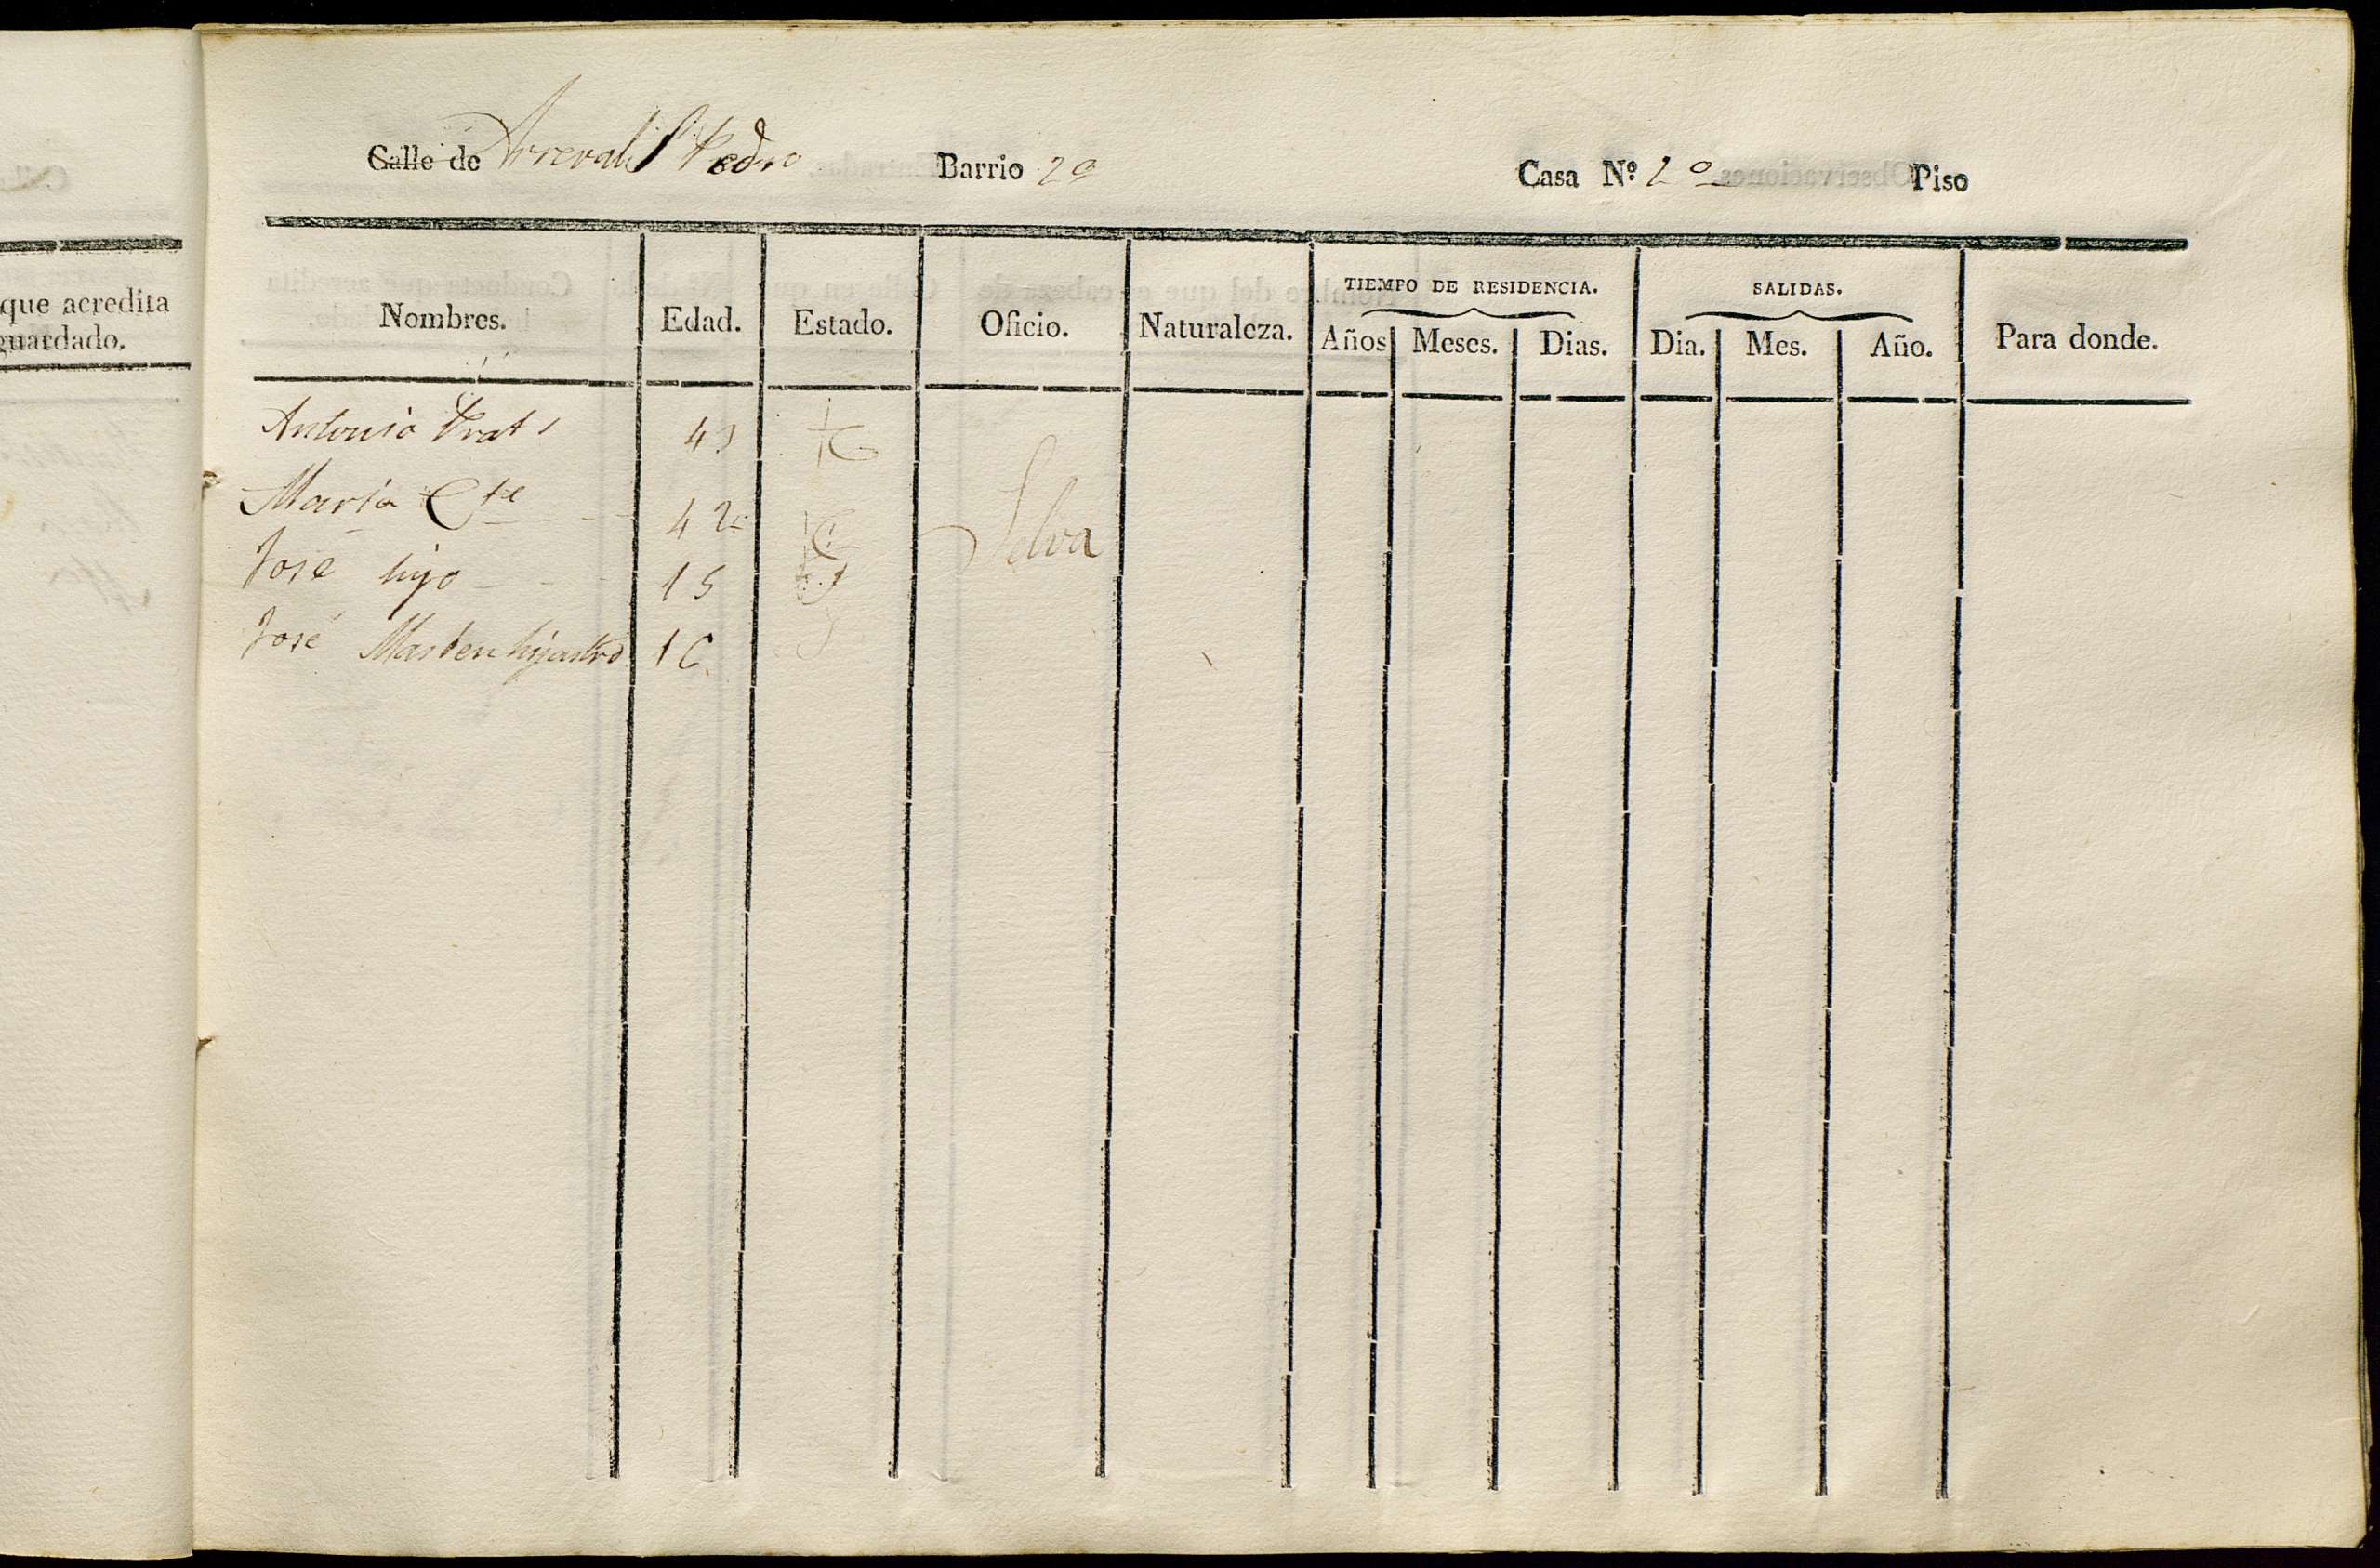 que acredita
guardado.
Calle de Arreval S Pedro Barrio 2º Casa Nº 2º Piso
Nombres. Edad. Estado. Oficio. Naturaleza. TIEMPO DE RESIDENCIA. Años Meses. Dias. SALIDAS. Dia. Mes. Año. Para donde.
Antonio Prat 43
María Cte 42 C
José hijo 15 S
José hijastro 16 S
Selva